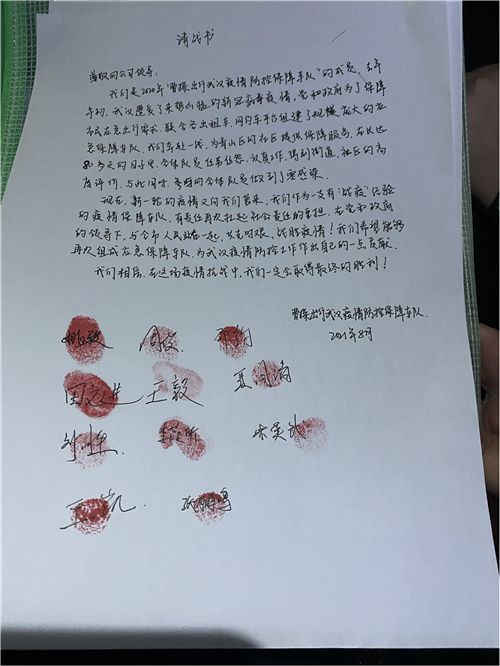 请战书
尊敬的公司领导：
我们是2020年“曹操出行武汉疫情防控保障车队”的成员，去年
年初，武汉遭受了来势凶猛的新冠肺炎疫情，党和政府为了保障
市民应急出行需求，联合各出租车、网约车平台组建了规模庞大的应
急保障车队。我们奔赴一线，为青山区的社区提供保障服务，在长达
80多天的日子里，全体队员任劳任怨、认真工作，得到街道、社区的高
度评价，与此同时，参战的全体队员做到了零感染。
现在，新一轮的疫情又向我们袭来，我们作为一支有“战疫”经验
的疫情保障车队，有责任再次扛起社会责任的重担，在党和政府
的领导下，与全市人民站在一起，共克时艰，战胜疫情！我们希望能够
再次组成应急保障车队，为武汉疫情防控工作作出自己的一点贡献。
我们相信，在这场疫情抗战中，我们一定会取得最终的胜利！
曹操出行武汉疫情防控保障车队
2021年8月
王毅